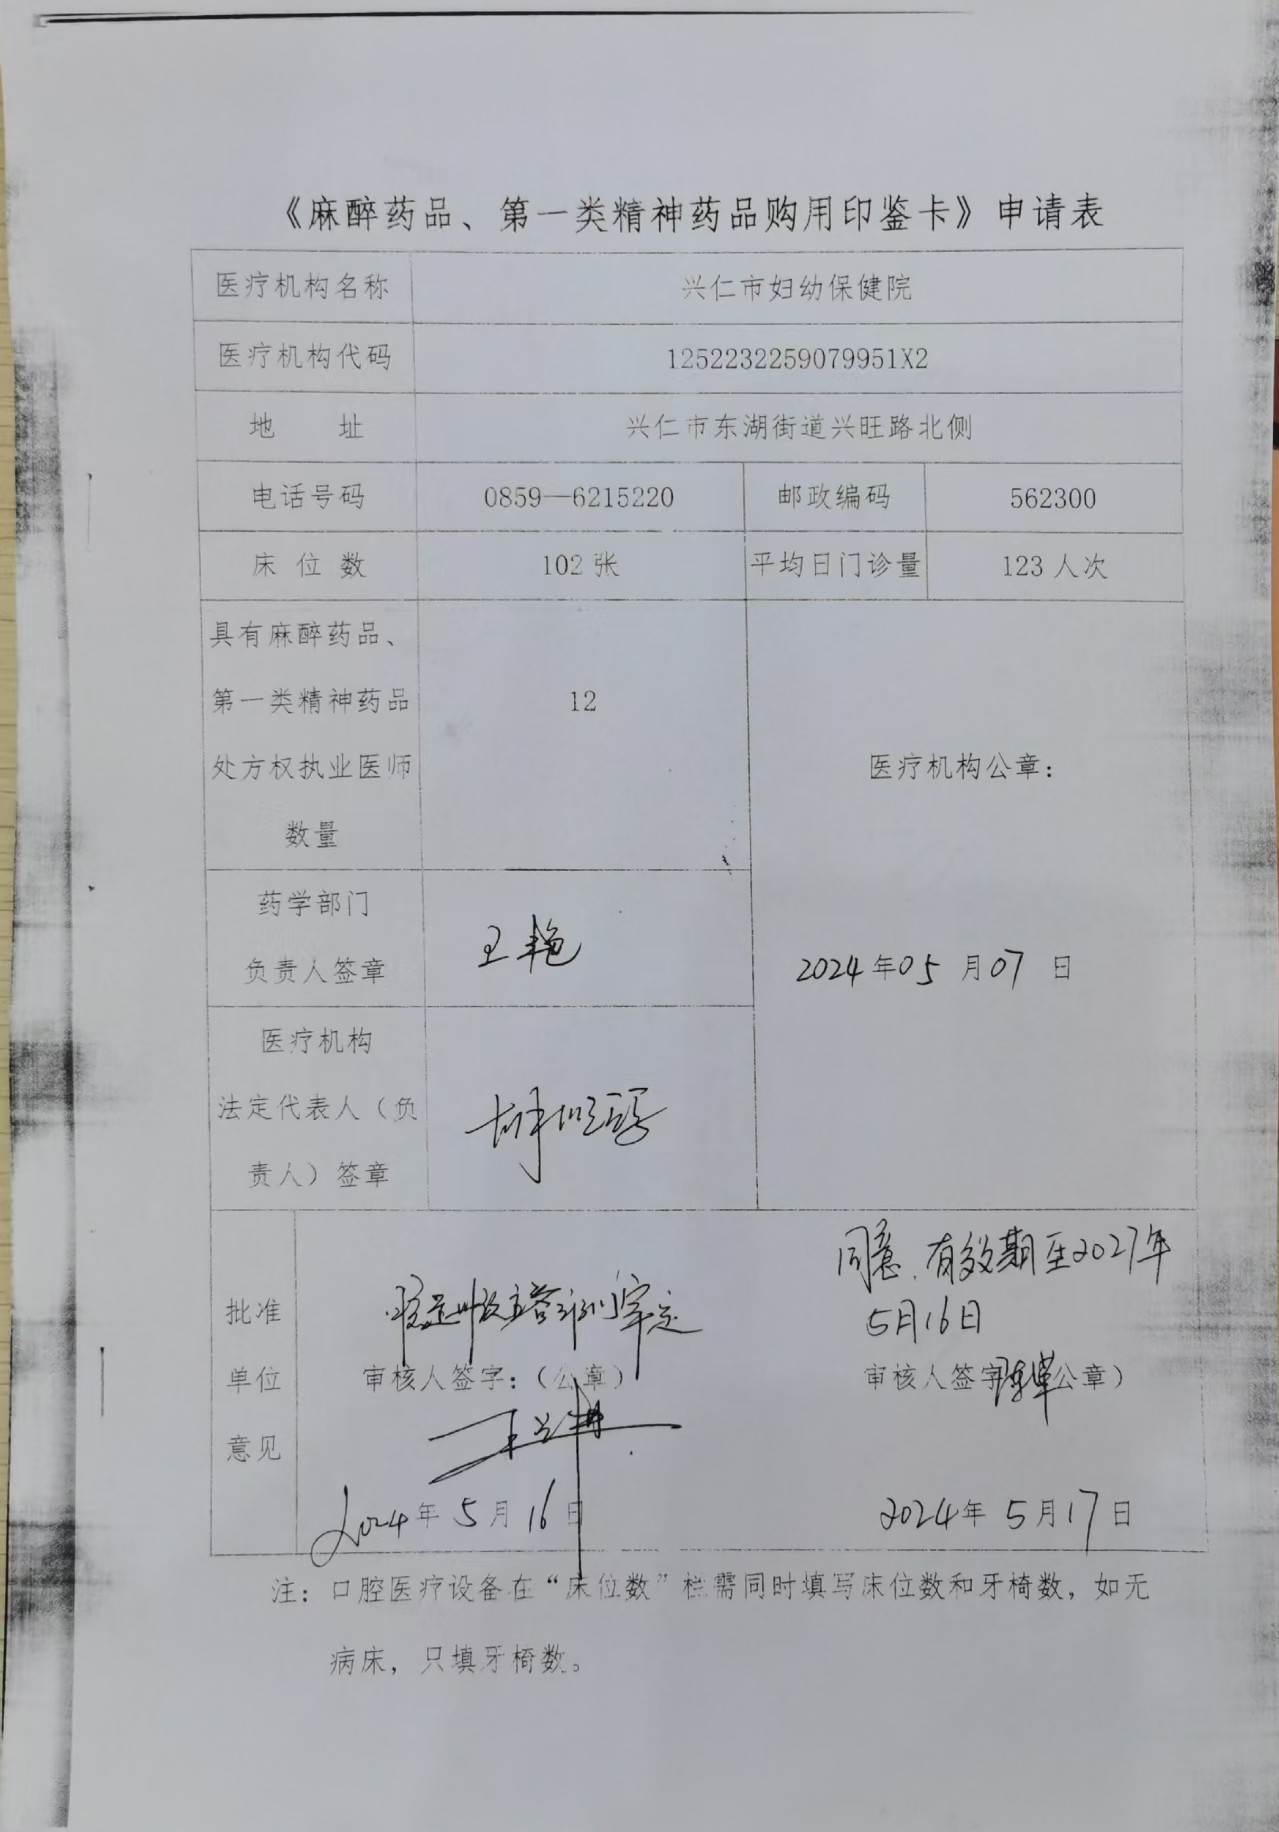 《麻醉药品、第一类精神药品购用印鉴卡》申请表
医疗机构名称 兴仁市妇幼保健院
医疗机构代码 1252232259079951X2
地 址 兴仁市东湖街道兴旺路北侧
电话号码 0859—6215220 邮政编码 562300
床 位 数 102 张 平均日门诊量 123 人次
具有麻醉药品、
第一类精神药品 12
处方权执业医师 医疗机构公章：
数量
药学部门
负责人签章 王艳 2024年05月07日
医疗机构
法定代表人（负
责人）签章
同意，有效期至2027年
5月16日
批准
单位 审核人签字：（公章） 审核人签字 公章）
意见
2024年5月16日 2024年5月17日
注：口腔医疗设备在“床位数”栏需同时填写床位数和牙椅数，如无
病床，只填牙椅数。